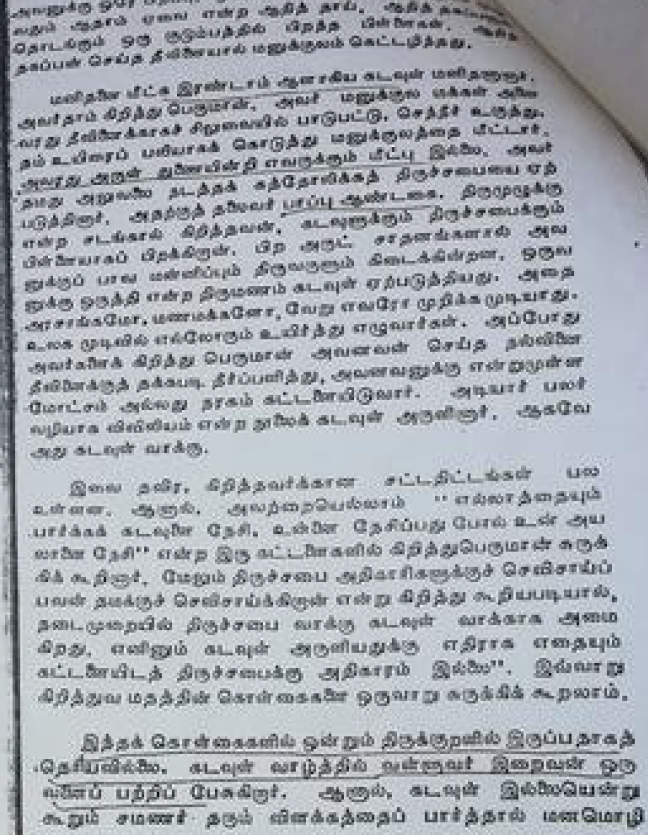 அவனுக்கு ஒரே
வதும் ஆதாம் ஏவை என்ற ஆதித் தாய், ஆதித்
தொடங்கும் ஒரு குடும்பத்தில் பிறந்த பிள்ளைகள்.
தகப்பன் செய்த தீவினையால் மனுக்குலம் கெட்டழிந்தது.
மனிதனை மீட்க இரண்டாம் ஆளாகிய கடவுள் மனிதனானார்.
அவர்தாம் கிறித்து பெருமான். அவர் மனுக்குல மக்கள் அனை
வரது தீவினைக்காகச் சிலுவையில் பாடுபட்டு, செந்நீர் உகுத்து,
தம் உயிரைப் பலியாகக் கொடுத்து மனுக்குலத்தை மீட்டார்.
அவரது அருள் துணையின்றி எவருக்கும் மீட்பு இல்லை. அவர்
தமது அலுவலை நடத்தக் கத்தோலிக்கத் திருச்சபையை ஏற்
படுத்தினார். அதற்குத் தலைவர் பாப்பு ஆண்டகை. திருமுழுக்கு
என்ற சடங்கால் கிறித்தவன், கடவுளுக்கும் திருச்சபைக்கும்
பிள்ளையாகப் பிறக்கிறான். பிற அருட் சாதனங்களால் அவ
னுக்குப் பாவ மன்னிப்பும் திருவருளும் கிடைக்கின்றன. ஒருவ
னுக்கு ஒருத்தி என்ற திருமணம் கடவுள் ஏற்படுத்தியது. அதை
அரசாங்கமோ, மணமக்களோ, வேறு எவரோ முறிக்க முடியாது.
உலக முடிவில் எல்லோரும் உயிர்த்து எழுவார்கள். அப்போது
அவர்களைக் கிறித்து பெருமான் அவனவன் செய்த நல்வினை
தீவினைக்குத் தக்கபடி தீர்ப்பளித்து, அவனவனுக்கு என்றுமுள்ள
மோட்சம் அல்லது நரகம் கட்டளையிடுவார். அடியார் பலர்
வழியாக விவிலியம் என்ற நூலைக் கடவுள் அருளினார். ஆகவே
அது கடவுள் வாக்கு.
இவை தவிர, கிறித்தவர்க்கான சட்டதிட்டங்கள் பல
உள்ளன. ஆனால், அவற்றையெல்லாம் "எல்லாத்தையும்
பார்க்கக் கடவுளை நேசி, உன்னை நேசிப்பது போல் உன் அய
லானை நேசி" என்ற இரு கட்டளைகளில் கிறித்துபெருமான் சுருக்
கிக் கூறினார். மேலும் திருச்சபை அதிகாரிகளுக்குச் செவிசாய்ப்
பவன் தமக்குச் செவிசாய்க்கிறான் என்று கிறித்து கூறியபடியால்,
நடைமுறையில் திருச்சபை வாக்கு கடவுள் வாக்காக அமை
கிறது. எனினும் கடவுள் அருளியதுக்கு எதிராக எதையும்
கட்டளையிடத் திருச்சபைக்கு அதிகாரம் இல்லை". இவ்வாறு
கிறித்துவ மதத்தின் கொள்கைகளை ஒருவாறு சுருக்கிக் கூறலாம்.
இந்தக் கொள்கைகளில் ஒன்றும் திருக்குறளில் இருப்பதாகத்
தெரியவில்லை. கடவுள் வாழ்த்தில் வள்ளுவர் இறைவன் ஒரு
வனைப் பற்றிப் பேசுகிறார். ஆனால், கடவுள் இல்லையென்று
கூறும் சமணர் தரும் விளக்கத்தைப் பார்த்தால் மனமொழி